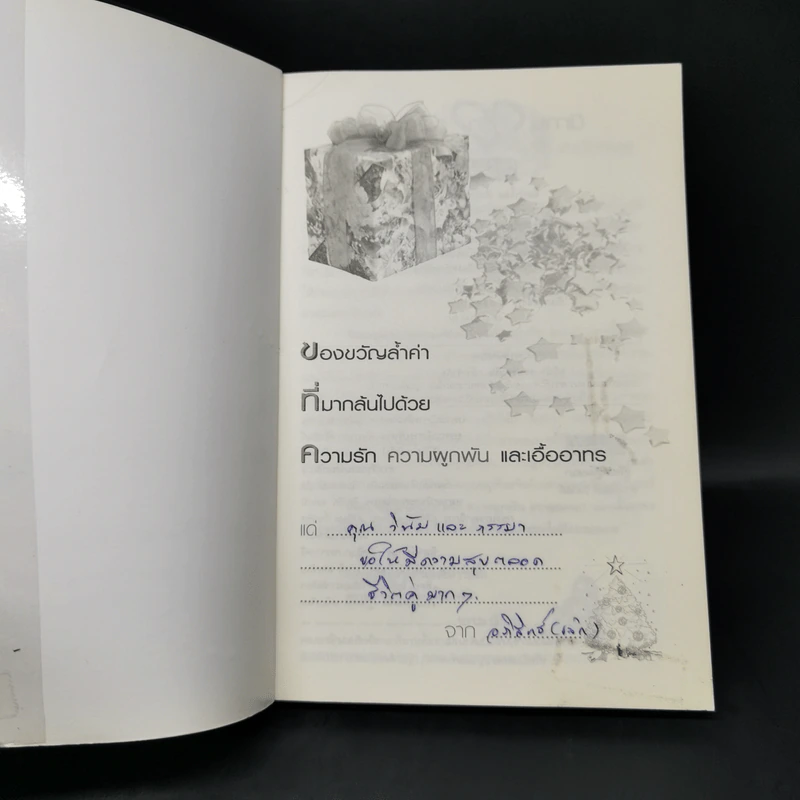 ของขวัญล้ำค่า
ที่มากล้นไปด้วย
ความรัก ความผูกพัน และเอื้ออาทร
แด่ คุณ วินัม และ
ขอให้มีความสุขตลอด
ชีวิตคู่มากๆ
จาก